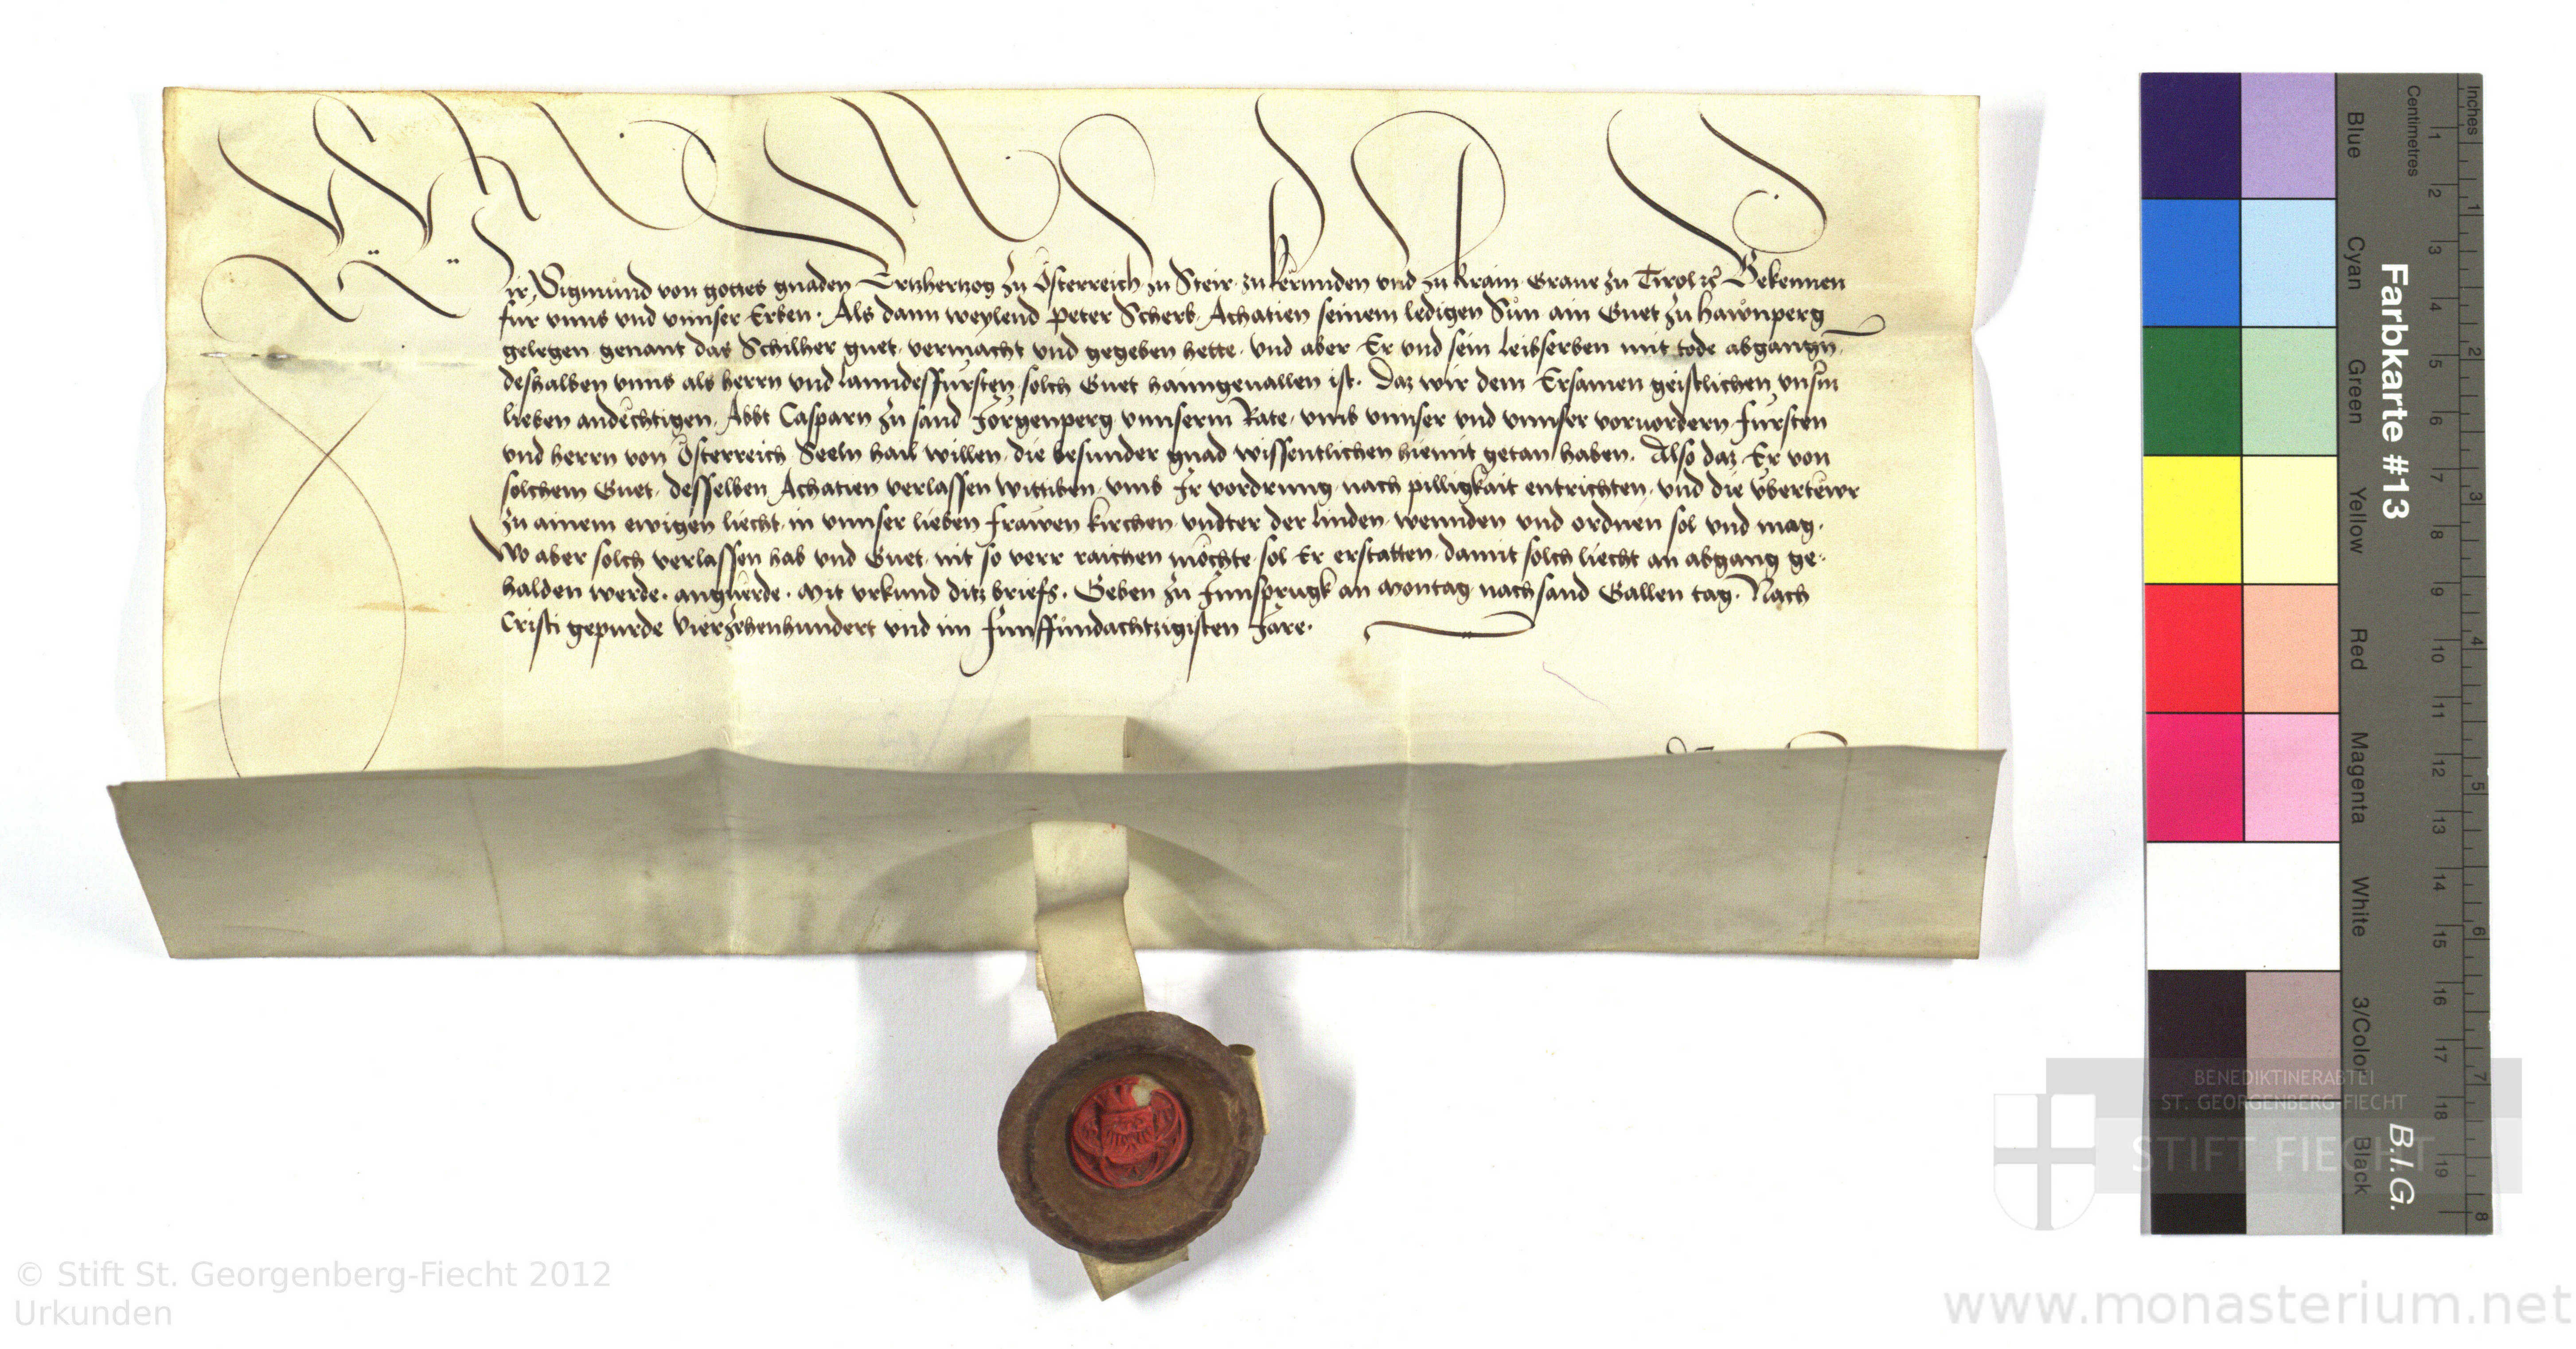 Wir Sigmund von gottes gnaden Ertzhertzog zu Österreich zu Steir zu kernnden vnd zu krain Graue zu Tirol etc Bekennen
für vnns vnd vnnser Erben. Als dann weylend Peter Scherb Achatien seinem ledigen Sun ain Guet zu hawnperg
gelegen genant das Schilher guet, vermacht vnd gegeben hette, vnd aber Er vnd sein leibserben mit tode abgangn,
deshalben vnns als herrn vnd lanndesfürsten solch Guet haimgeuallen ist. Daz wir dem Ersamen geistlichen vnsm
lieben andechtigen, Abbt Casparn zu sand Jörgenperg vnnserm Rate, vmb vnnser vnd vnnser voruordern fürsten
vnd herrn von Österreich Seeln hail willen, die besunder gnad wissentlichen hiemit getan haben. Also daz Er von
solchem Guet, desselben Achatien verlassen wittiben, vmb Ir vordrung nach pilligkait entrichten, vnd die vbertewr
zu ainem ewigen liecht, in vnnser lieben frawen kirchen vndter der linden, wennden vnd ordnen sol vnd mag.
Wo aber solch verlassen hab vnd Guet, nit so verr raichen möchte, sol Er erstatten, damit solch liecht an abgang ge-
halden werde. angeuerde. Mit vrkund ditz briefs. Geben zu Innsprugk an Montag nach sand Gallen tag. Nach
Cristi gepurde Vierzehenhundert vnd im fünffundachtzigisten Jare.
Farbkarte #13
B.I.G.
Blue
Cyan
Green
Yellow
Red
Magenta
White
3/Color
Black
Centimetres
1 2 3 4 5 6 7 8 9 10 11 12 13 14 15 16 17 18 19
Inches
1 2 3 4 5 6 7 8
BENEDIKTINERABTEI
ST. GEORGENBERG-FIECHT
STIFT FIECHT
© Stift St. Georgenberg-Fiecht 2012
Urkunden
www.monasterium.net